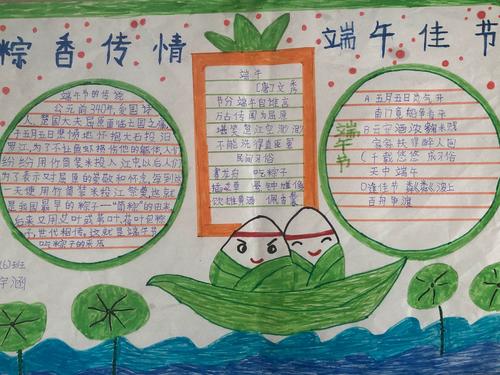 粽香传情
端午佳节
端午节的传说
公元前340年,爱国诗
人、楚国大夫屈原面临亡国之痛,
于五月五日悲愤地怀抱大石投汨
罗江,为了不让鱼虾损伤他的躯体,人们
纷纷用竹筒装米投入江中以后人们
为了表示对屈原的崇敬和怀念,每到这
天便用竹筒装米投江祭奠,这就
是我国最早的粽子一"筒粽"的由来
后来又用艾叶或苇叶、荷叶包粽
子,世代相传,这就是端午节
吃粽子的来历
端午
[唐]文秀
节分端午自谁言
万古传闻为屈原
堪笑楚江空渺渺
不能洗得直臣冤
民间习俗
赛龙舟 吃粽子
饮雄黄酒 佩香囊
端午节
A 五月五日岚气开
南门竞船争看来
天中端午
百舸争渡